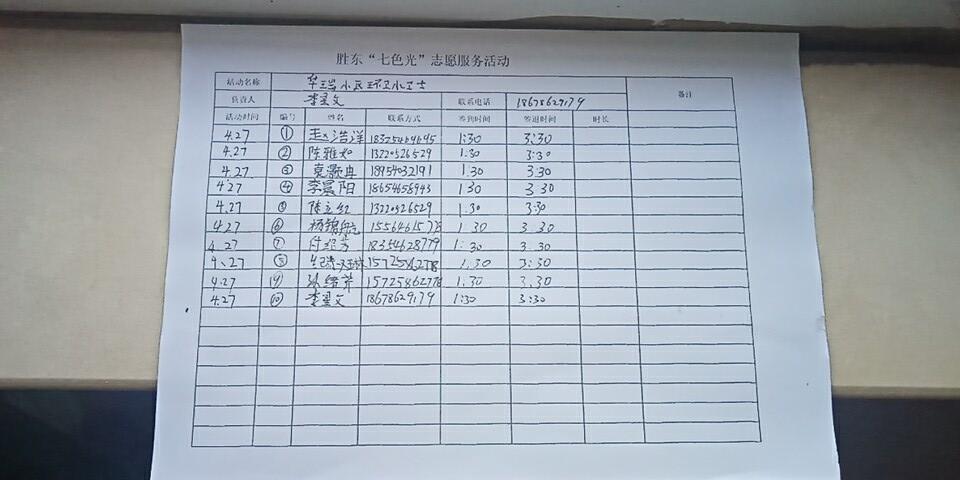 胜东“七色光”志愿服务活动
活动名称 华瑞小区环卫小卫士 备注
负责人 李星文 联系电话 18678629179
活动时间 编号 姓名 联系方式 签到时间 签退时间 时长
4.27 ① 浩洋 18325464645 1:30 3:30
4.27 ② 陈雅如 13220526529 1.30 3:30
4.27 ③ 袁灏冉 18954032191 1.30 3.30
4.27 ④ 李晨阳 18654658943 1 30 3 30
4.27 ⑤ 陈立红 13220526529 1.30 3:30
4.27 ⑥ 杨锦航 1556461577 1.30 3.30
4.27 ⑦ 付 芳 18354628779 1:30 3.30
4.27 ⑧ 1.30 3:30
4.27 ⑨ 15725862778 1.30 3.30
4.27 ⑩ 李星文 18678629179 1:30 3:30